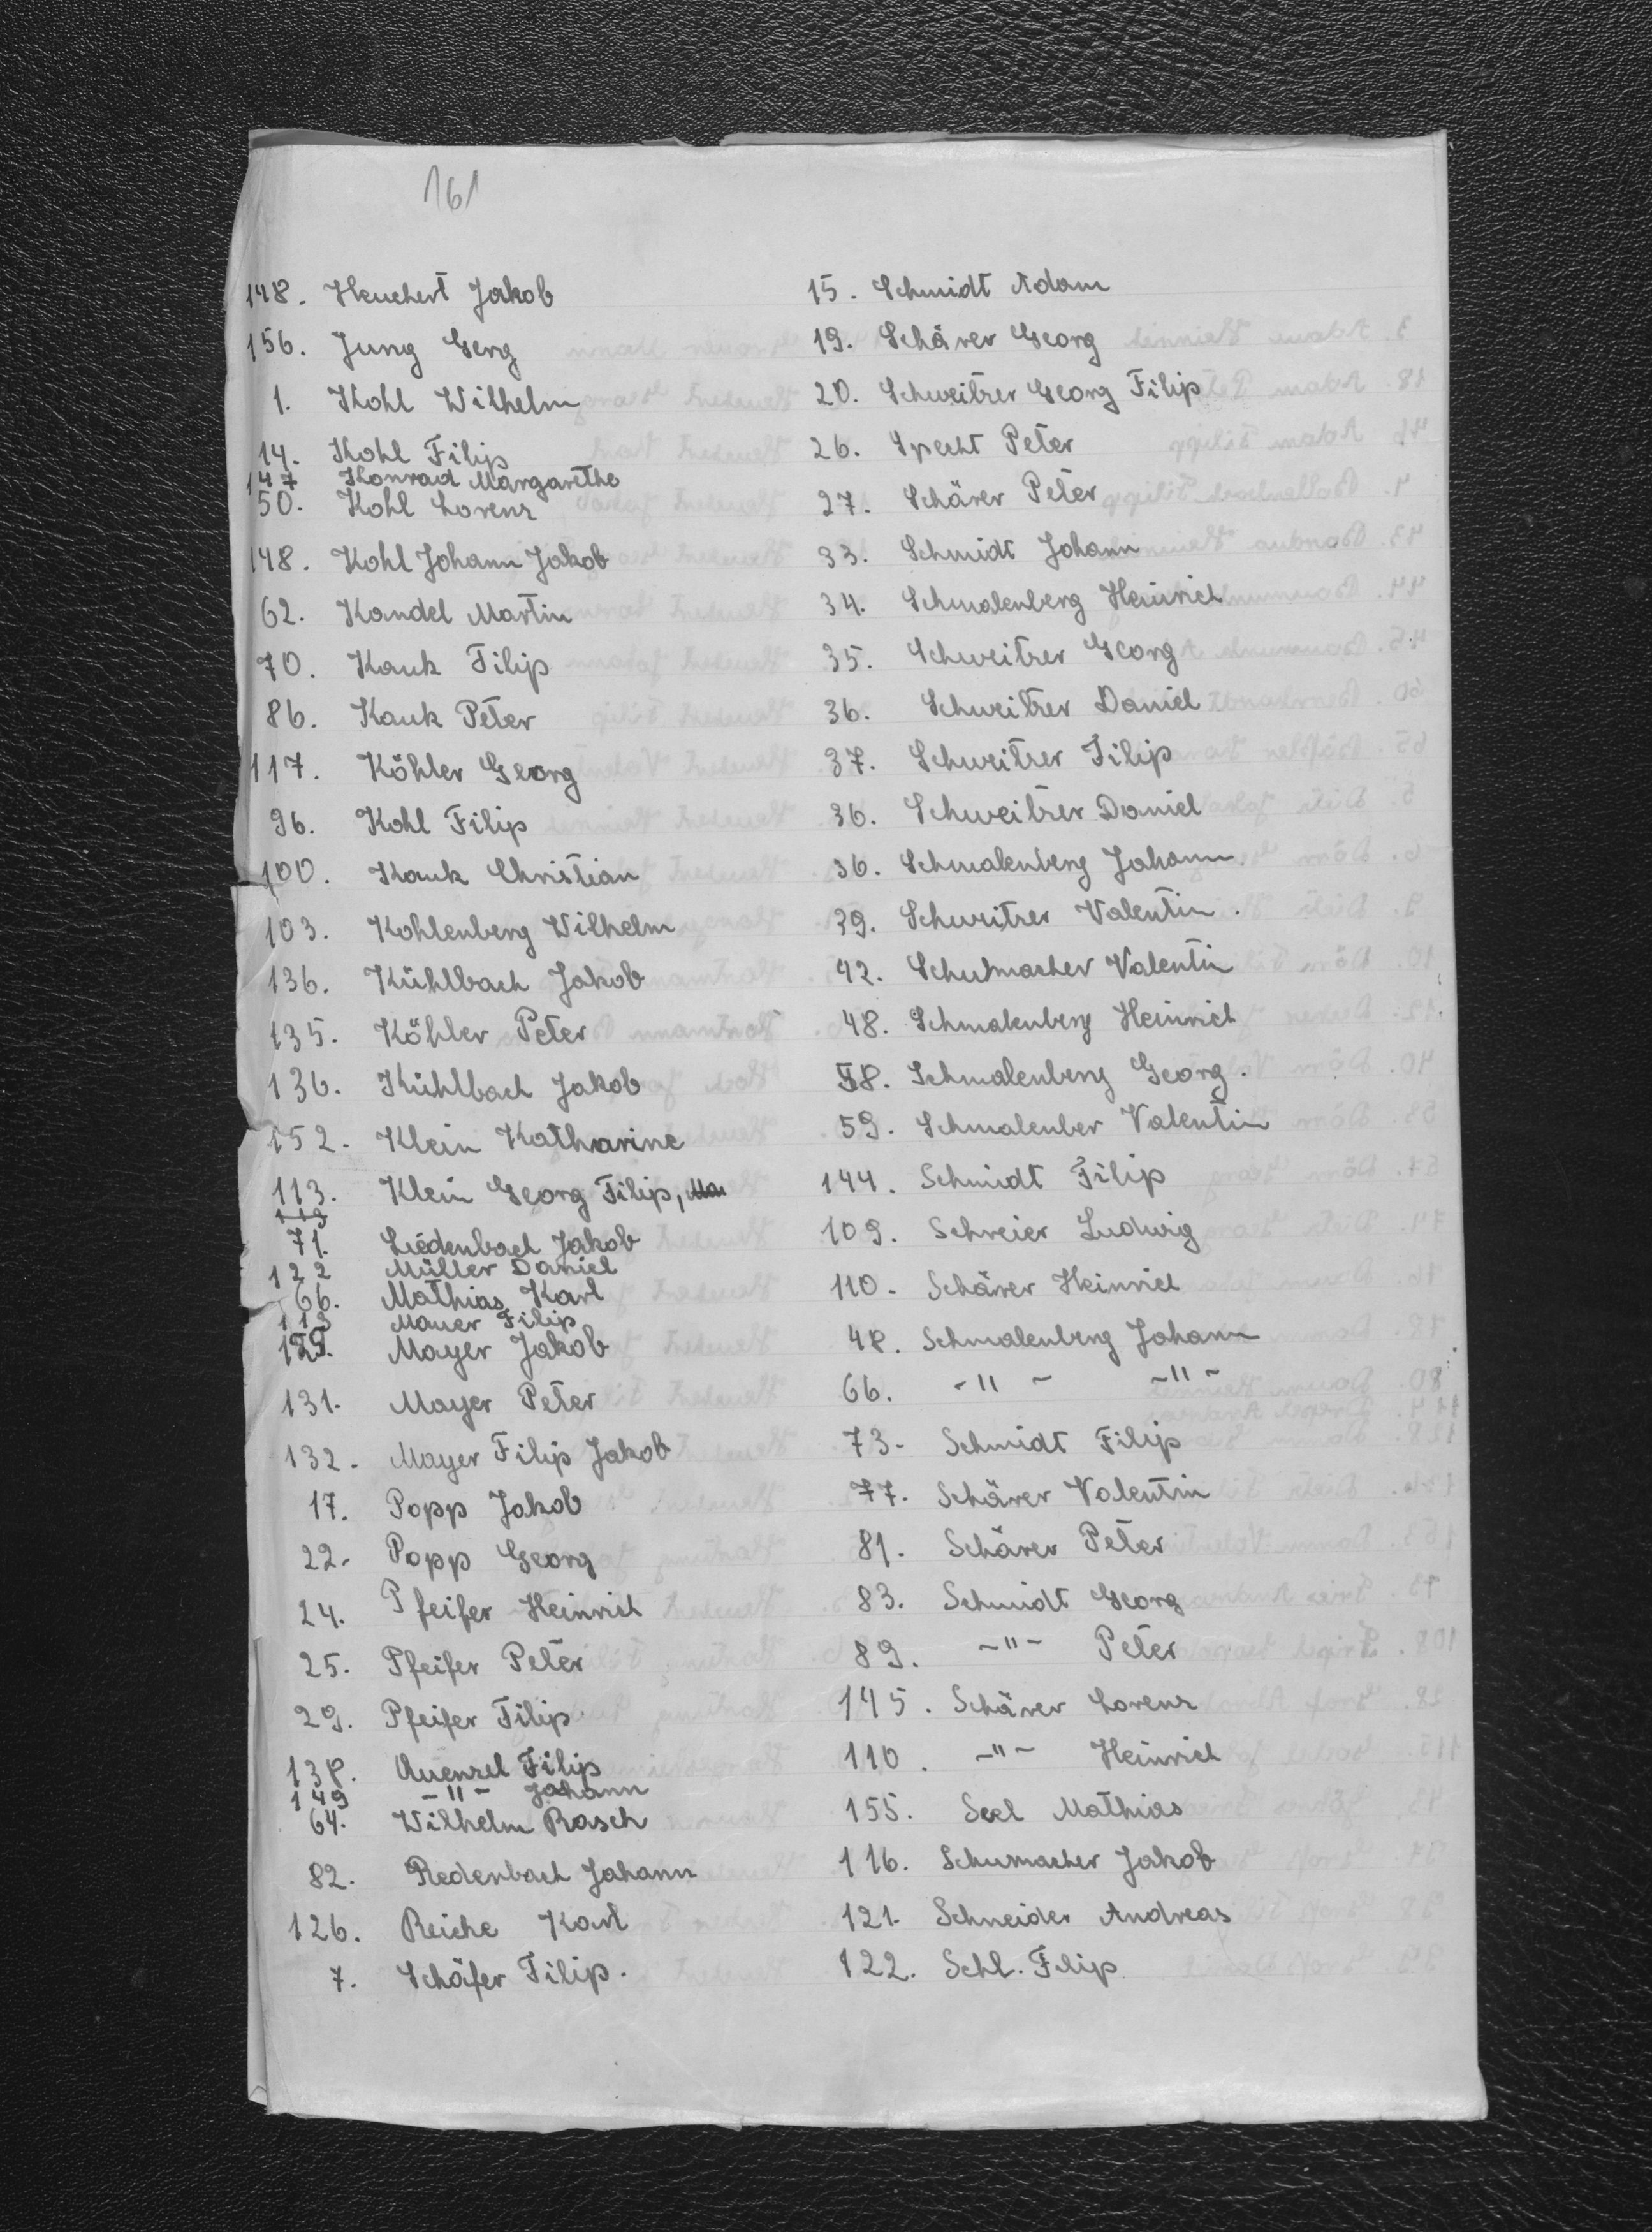 161
148. Heuchert Jakob
156. Jung Gerg
1. Kohl Wilhelm
14. Kohl Filip
147 Konrad Margarethe
50. Kohl Lorenz
148. Kohl Johann Jakob
62. Kandel Martin
70. Kauk Filip
86. Kauk Peter
117. Köhler Georg
96. Kohl Filip
100. Kauk Christian
103. Kohlenberg Wilhelm
136. Kühlbach Jakob
135. Köhler Peter
136. Kühlbach Jakob
152. Klein Katharine
113. Klein Georg Filip,
113
71. Liedenbach Jakob
122 Müller Daniel
66. Mathias Karl
113 Mauer Filip
129. Mayer Jakob
131. Mayer Peter
132. Mayer Filip Jakob
17. Popp Jakob
22. Popp Georg
24. Pfeifer Heinrich
25. Pfeifer Peter
29. Pfeifer Filip
138. Quenzel Filip
149 -"- Johann
64. Wilhelm Rasch
82. Redenbach Johann
126. Reiche Karl
7. Schäfer Filip.
15. Schmidt Adam
19. Schärer Georg
20. Schweitzer Georg Filip
26. Specht Peter
27. Schärer Peter
33. Schmidt Johann
34. Schmalenberg Heinrich
35. Schweitzer Georg
36. Schweitzer Daniel
37. Schweitzer Filip
36. Schweitzer Daniel
36. Schmalenberg Johann
39. Schweitzer Valentin.
42. Schumacher Valentin
48. Schmalenberg Heinrich
58. Schmalenberg Georg.
59. Schmalenber Valentin
144. Schmidt Filip
109. Schreier Ludwig
110. Schärer Heinrich
48. Schmalenberg Johann
66. -"- -"-
73- Schmidt Filip
77. Schärer Valentin
81. Schärer Peter
83. Schmidt Georg
89. -"- Peter
145. Schärer Lorenz
110. -"- Heinrich
155. Seel Mathias
116. Schumacher Jakob
121. Schneider Andreas
122. Schl. Filip